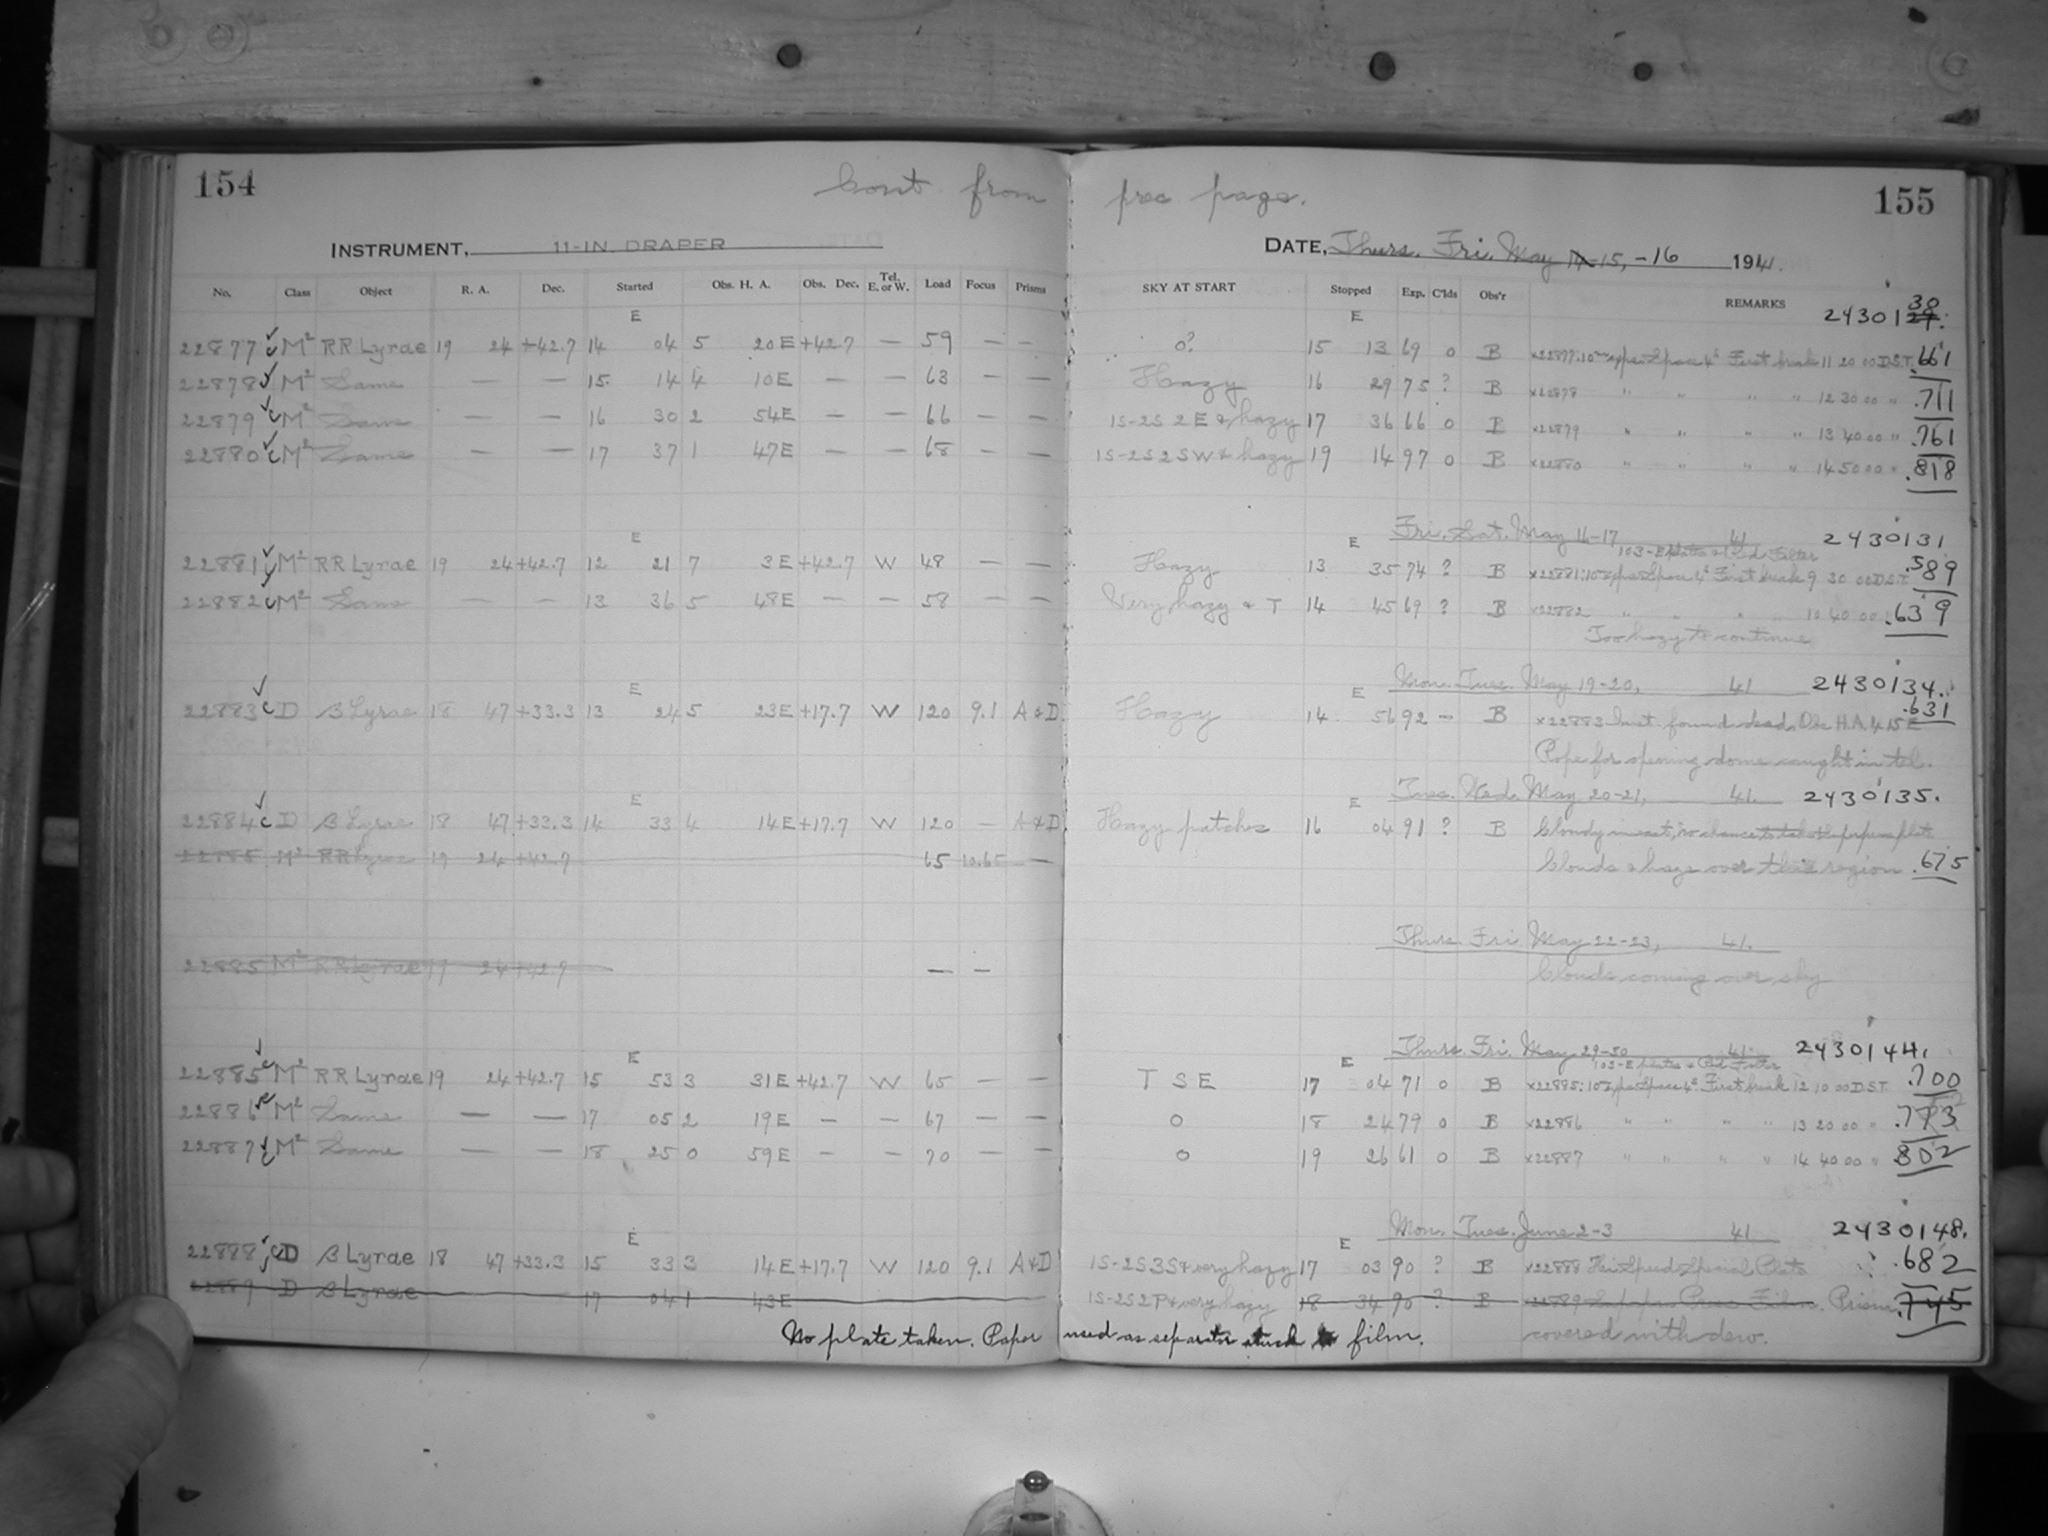 154 Cont from prec page. 155
INSTRUMENT, 11-IN. DRAPER DATE, Thurs. Fri. May 15, -16 1941.
No. Class Object R. A. Dec. Started Obs. H. A. Obs. Dec. Tel. E. or W. Load Focus Prisms SKY AT START Stopped Exp. C'lds Obs'r REMARKS
E E 24301 30
22877 M² RR Lyrae 19 24 +42.7 14 04 5 20 E +42.7 — 59 — — 0? 15 13 69 0 B x22877: 10 First break 11 20 00 D.S.T. .661
22878 M² Same — — 15 14 4 10E — — 63 — — Hazy 16 29 75 ? B x22878 " " " " 12 30 00 " .711
22879 M² Same — — 16 30 2 54E — — 66 — — 1S-2S 2 E & hazy 17 36 66 0 B x22879 " " " " 13 40 00 " .761
22880 M² Same — — 17 37 1 47E — — 68 — — 1S-2S 2 SW & hazy 19 14 97 0 B x22880 " " " " 14 50 00 " .818
E E Fri. Sat. May 16-17 41 2430131
103-E plates & Red Filter
22881 M² RR Lyrae 19 24 +42.7 12 21 7 3E +42.7 W 48 — — Hazy 13 35 74 ? B x22881: 10 First break 9 30 00 D.S.T. .589
22882 M² Same — — 13 36 5 48E — — 58 — — Very hazy & T 14 45 69 ? B x22882 " " " " 10 40 00 .639
Too hazy to continue
E E Mon. Tues. May 19-20, 41 2430134.
22883 D β Lyrae 18 47 +33.3 13 24 5 23E +17.7 W 120 9.1 A & D Hazy 14 56 92 — B x22883 Inst. found dead. Obs H.A. 4 15 E .631
Rope for opening dome caught in tel.
E E Tues. Wed. May 20-21, 41. 2430135.
22884 D β Lyrae 18 47 +33.3 14 33 4 14E +17.7 W 120 — A & D Hazy patches 16 04 91 ? B Cloudy in east, no chance to
22885 M² RR Lyrae 19 24 +42.7 65 10.65 — Clouds & haze over this region .675
Thurs. Fri. May 22-23, 41.
22885 M² RR Lyrae 19 24 +42.7 — — Clouds coming over sky
E E Thurs. Fri. May 29-30 41. 2430144.
103-E plates & Red Filter
22885 M² RR Lyrae 19 24 +42.7 15 53 3 31E +42.7 W 65 — — T S E 17 04 71 0 B x22885: 10 First break 12 10 00 D.S.T. .700
22886 M² Same — — 17 05 2 19E — — 67 — — 0 18 24 79 0 B x22886 " " " " 13 20 00 "
22887 M² Same — — 18 25 0 59E — — 70 — — 0 19 26 61 0 B x22887 " " " " 14 40 00 " .802
E E Mon. Tues. June 2-3 41. 2430148.
22888 D β Lyrae 18 47 +33.3 15 33 3 14E +17.7 W 120 9.1 A & D 1S-2S 3S & very hazy 17 03 90 ? B x22888 Hi Speed Special Plate .682
22889 D β Lyrae 17 04 1 43E 1S-2S 2P & very hazy 18 34 90 ? B x22889 Film. Prism .745
No plate taken. Paper used as separator stuck to film. covered with dew.